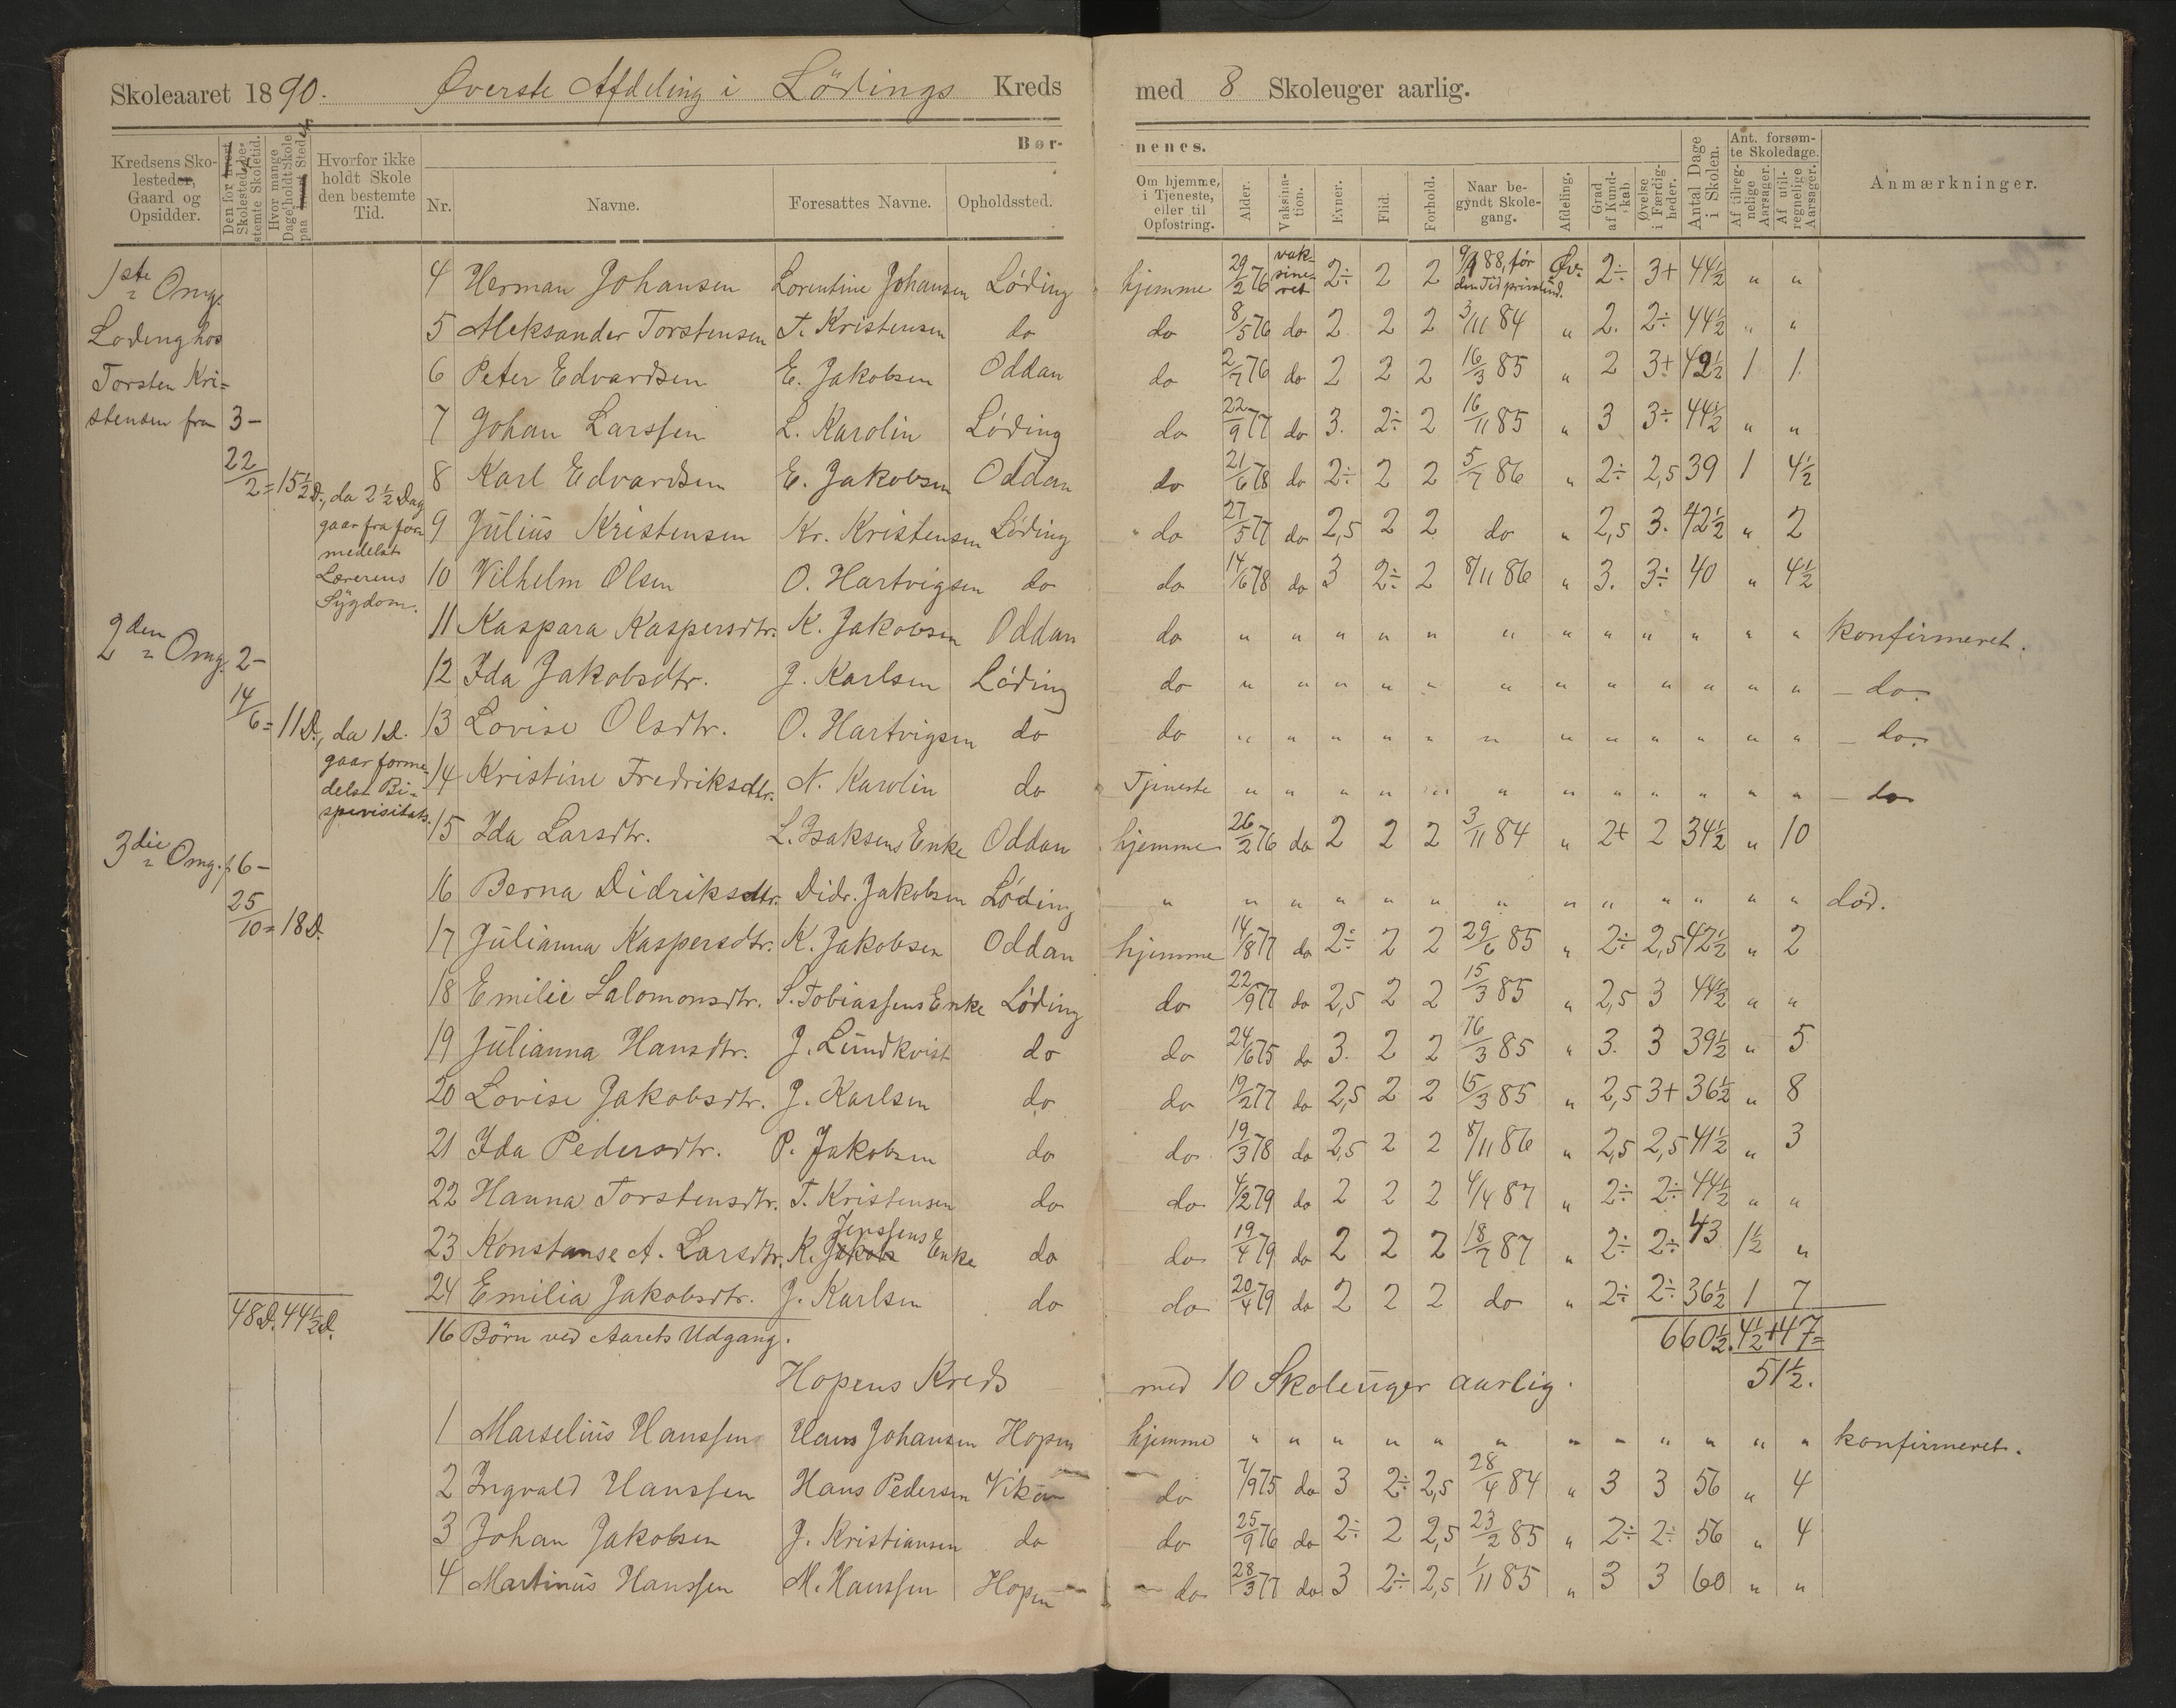 Skoleaaret 1890. Øverste Afdeling i Lödings Kreds med 8 Skoleuger aarlig.
Kredsens Skolesteder, Gaard og Opsidder. Den for hvert Skolested bestemte Skoletid. Hvor mange Dage holdt Skole paa hvert Sted. Hvorfor ikke holdt Skole den bestemte Tid. Børnenes.
Nr. Navne. Foresattes Navne. Opholdssted. Om hjemme, i Tjeneste, eller til Opfostring. Alder. Vaksination. Evner. Flid. Forhold. Naar begyndt Skolegang. Afdeling. Grad af Kundskab. Øvelse i Færdigheder. Antal Dage i Skolen. Ant. forsømte Skoledage. Af tilregnelige Aarsager. Af utilregnelige Aarsager. Anmærkninger.
1ste Omg.
Løding hos
Torsten Kri-
stensen fra 3 -
22/2 = 15½ D., da 2½ Dag
gaar fra for-
medelst
Lærerens
Sygdom.
2den Omg. 2 -
14/6 = 11 D., da 1 D.
gaar forme-
delst Bi-
spevisitats.
3die Omg. f 6 -
25/10 = 18 D.
48 D. 44½ D.
4 Herman Johansen Lorentine Johansen Löding hjemme 29/2 76 vaksineret 2÷ 2 2 9/9 88, før den Tid privatund. Øv. 2÷ 3+ 44½ " "
5 Aleksander Torstensen T. Kristensen do do 8/5 76 do 2 2 2 3/11 84 " 2. 2÷ 44½ " "
6 Peter Edvardsen E. Jakobsen Oddan do 2/7 76 do 2 2 2 16/3 85 " 2 3+ 42½ 1 1
7 Johan Larssen L. Karolin Löding do 22/9 77 do 3. 2÷ 2 16/11 85 " 3 3÷ 44½ " "
8 Karl Edvardsen E. Jakobsen Oddan do 21/6 78 do 2÷ 2 2 5/7 86 " 2÷ 2,5 39 1 4½
9 Julius Kristensen Kr. Kristensen Löding do 27/5 77 do 2,5 2 2 do " 2,5 3. 42½ " 2
10 Vilhelm Olsen O. Hartvigsen do do 14/6 78 do 3 2÷ 2 8/11 86 " 3. 3÷ 40 " 4½
11 Kaspara Kaspersdtr. K. Jakobsen Oddan do " " " " " " " " " " " " konfirmeret.
12 Ida Jakobsdtr. J. Karlsen Löding do " " " " " " " " " " " " - do.
13 Lovise Olsdtr. O. Hartvigsen do do " " " " " " " " " " " " - do.
14 Kristine Fredriksdtr. N. Karolin do Tjeneste " " " " " " " " " " " " - do
15 Ida Larsdtr. L. Isaksens Enke Oddan hjemme 26/2 76 do 2 2 2 3/11 84 " 2+ 2 34½ " 10
16 Berna Didriksdtr. Didr. Jakobsen Löding " " " " " " " " " " " " " død.
17 Julianna Kaspersdtr. K. Jakobsen Oddan hjemme 14/8 77 do 2÷ 2 2 29/6 85 " 2÷ 2,5 42½ " 2
18 Emilie Salomonsdtr. S. Tobiassens Enke Löding do 22/9 77 do 2,5 2 2 15/3 85 " 2,5 3 44½ " "
19 Julianna Hansdtr. J. Lundkvist do do 24/6 75 do 3. 2 2 16/3 85 " 3. 3 39½ " 5
20 Lovise Jakobsdtr. J. Karlsen do do 19/2 77 do 2,5 2 2 15/3 85 " 2,5 3+ 36½ " 8
21 Ida Pedersdtr. P. Jakobsen do do 19/3 78 do 2,5 2 2 8/11 86 " 2,5 2,5 41½ " 3
22 Hanna Torstensdtr. T. Kristensen do do 4/2 79 do 2 2 2 4/4 87 " 2÷ 2÷ 44½ " "
23 Konstanse A. Larsdtr. K. Jenssens Enke do do 19/4 79 do 2 2 2 18/7 87 " 2÷ 2÷ 43 1½ "
24 Emilia Jakobsdtr. J. Karlsen do do 20/4 79 do 2 2 2 do " 2÷ 2÷ 36½ 1 7
16 Börn ved Aarets Udgang. 660½. 4½+47=
51½.
Hopens Kreds med 10 Skoleuger aarlig.
1 Marselius Hanssen Hans Johansen Hopen hjemme " " " " " " " " " " " " konfirmeret.
2 Ingvald Hanssen Hans Pedersen Vikan do 7/9 75 do 3 2÷ 2,5 28/4 84 " 3 3 56 " 4
3 Johan Jakobsen J. Kristiansen do do 25/9 76 do 2÷ 2 2,5 23/2 85 " 2÷ 2÷ 56 " 4
4 Martinus Hanssen M. Hanssen Hopen do 28/3 77 do 3 2÷ 2,5 1/11 85 " 3 3 60 " "